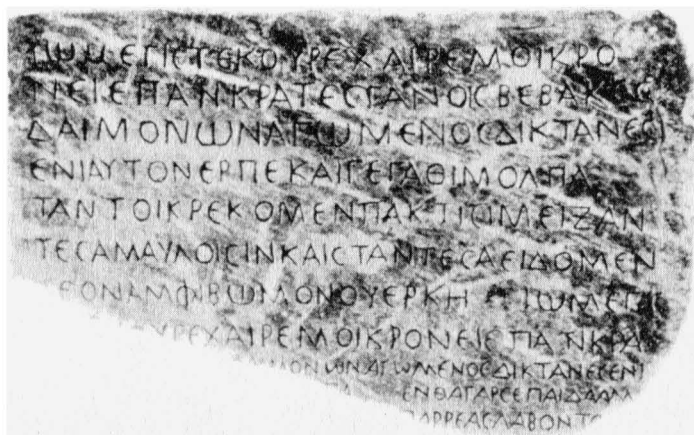 ΙΩΜΕΓΙCΤΕΚΟΥΡΕΧΑΙΡΕΜΟΙΚΡΟ
ΝΙΕΙΕΠΑΝΚΡΑΤΕCΓΑΝΟΙCΒΕΒΑΚΕC
ΔΑΙΜΟΝΩΝΑΓΩΜΕΝΟCΔΙΚΤΑΝΕCΙ
ΕΝΙΑΥΤΟΝΕΡΠΕΚΑΙΓΕΓΑΘΙΜΟΛΠΑ
ΤΑΝΤΟΙΚΡΕΚΟΜΕΝΠΑΚΤΙCΙΜΕΙΖΑΝ
ΤΕCΑΜΑΥΛΟΙCΙΝΚΑΙCΤΑΝΤΕCΑΕΙΔΟΜΕΝ
ΕΟΝΑΜΦΙΒΩΜΟΝΟΥΕΡΚΗ ΙΩΜΕΓΙC
ΥΡΕΧΑΙΡΕΜΟΙΚΡΟΝΕΙΕΠΑΝΚΡΑ
ΜΟΝΩΝΑΓΩΜΕΝΟCΔΙΚΤΑΝΕCΕΝΙ
ΕΝΘΑΓΑΡCΕΠΑΙΔΑΜΜ
ΑΡΡΕΑCΛΑΒΟΝΤ